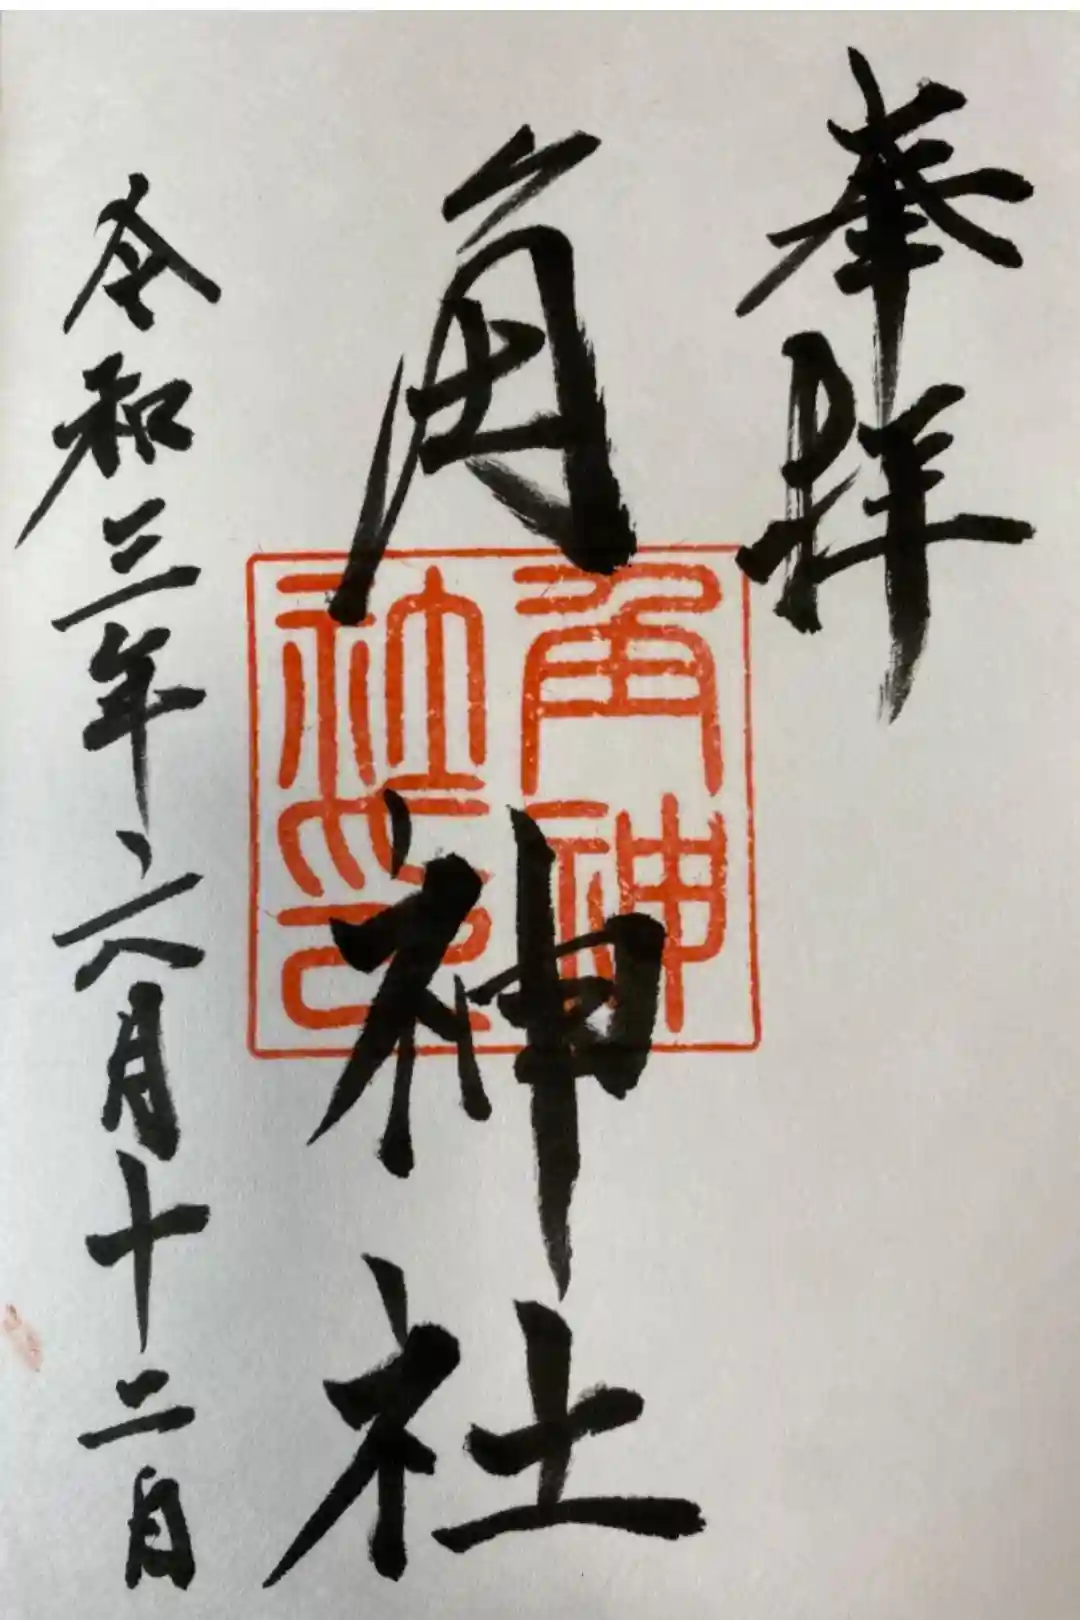 奉拝
角神社
角神
社印
令和三年六月十二日